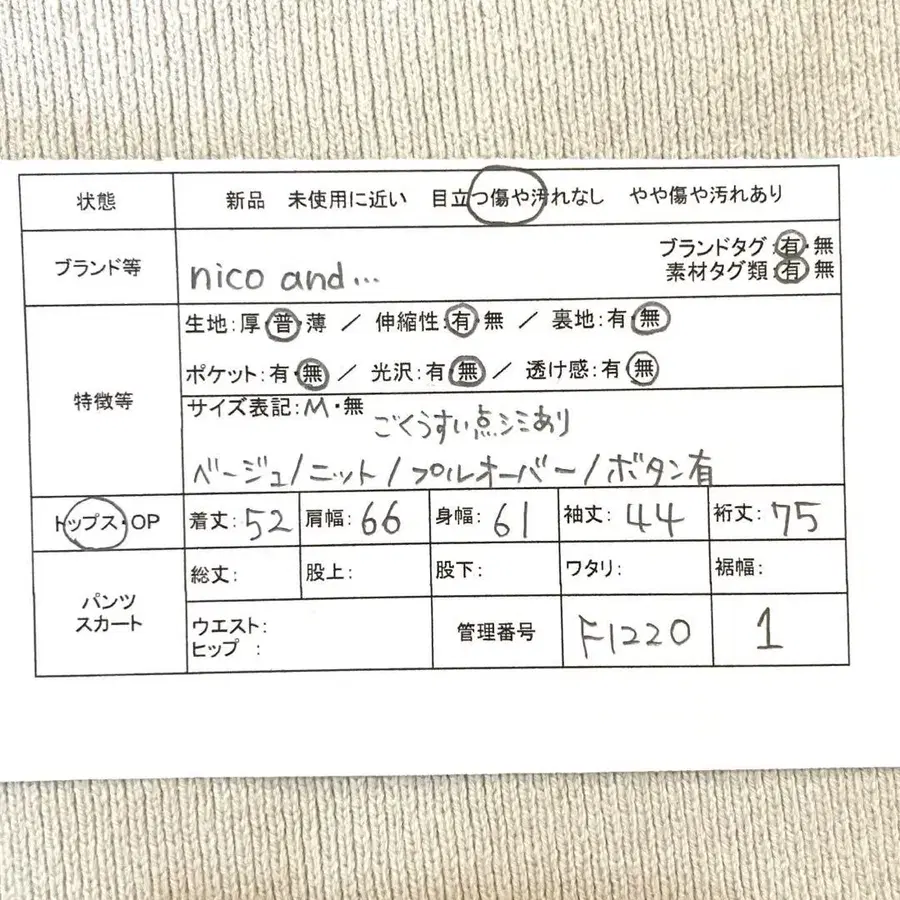 状態 新品 未使用に近い 目立つ傷や汚れなし やや傷や汚れあり
ブランド等 nico and... ブランドタグ:有・無
素材タグ類:有・無
生地:厚・普・薄 / 伸縮性:有・無 / 裏地:有・無
ポケット:有・無 / 光沢:有・無 / 透け感:有・無
特徴等
サイズ表記:M・無
ごくうすい点シミあり
ベージュ/ニット/プルオーバー/ボタン有
トップス・OP 着丈:52 肩幅:66 身幅:61 袖丈:44 裄丈:75
パンツ
スカート
総丈: 股上: 股下: ワタリ: 裾幅:
ウエスト:
ヒップ :
管理番号 F1220 1